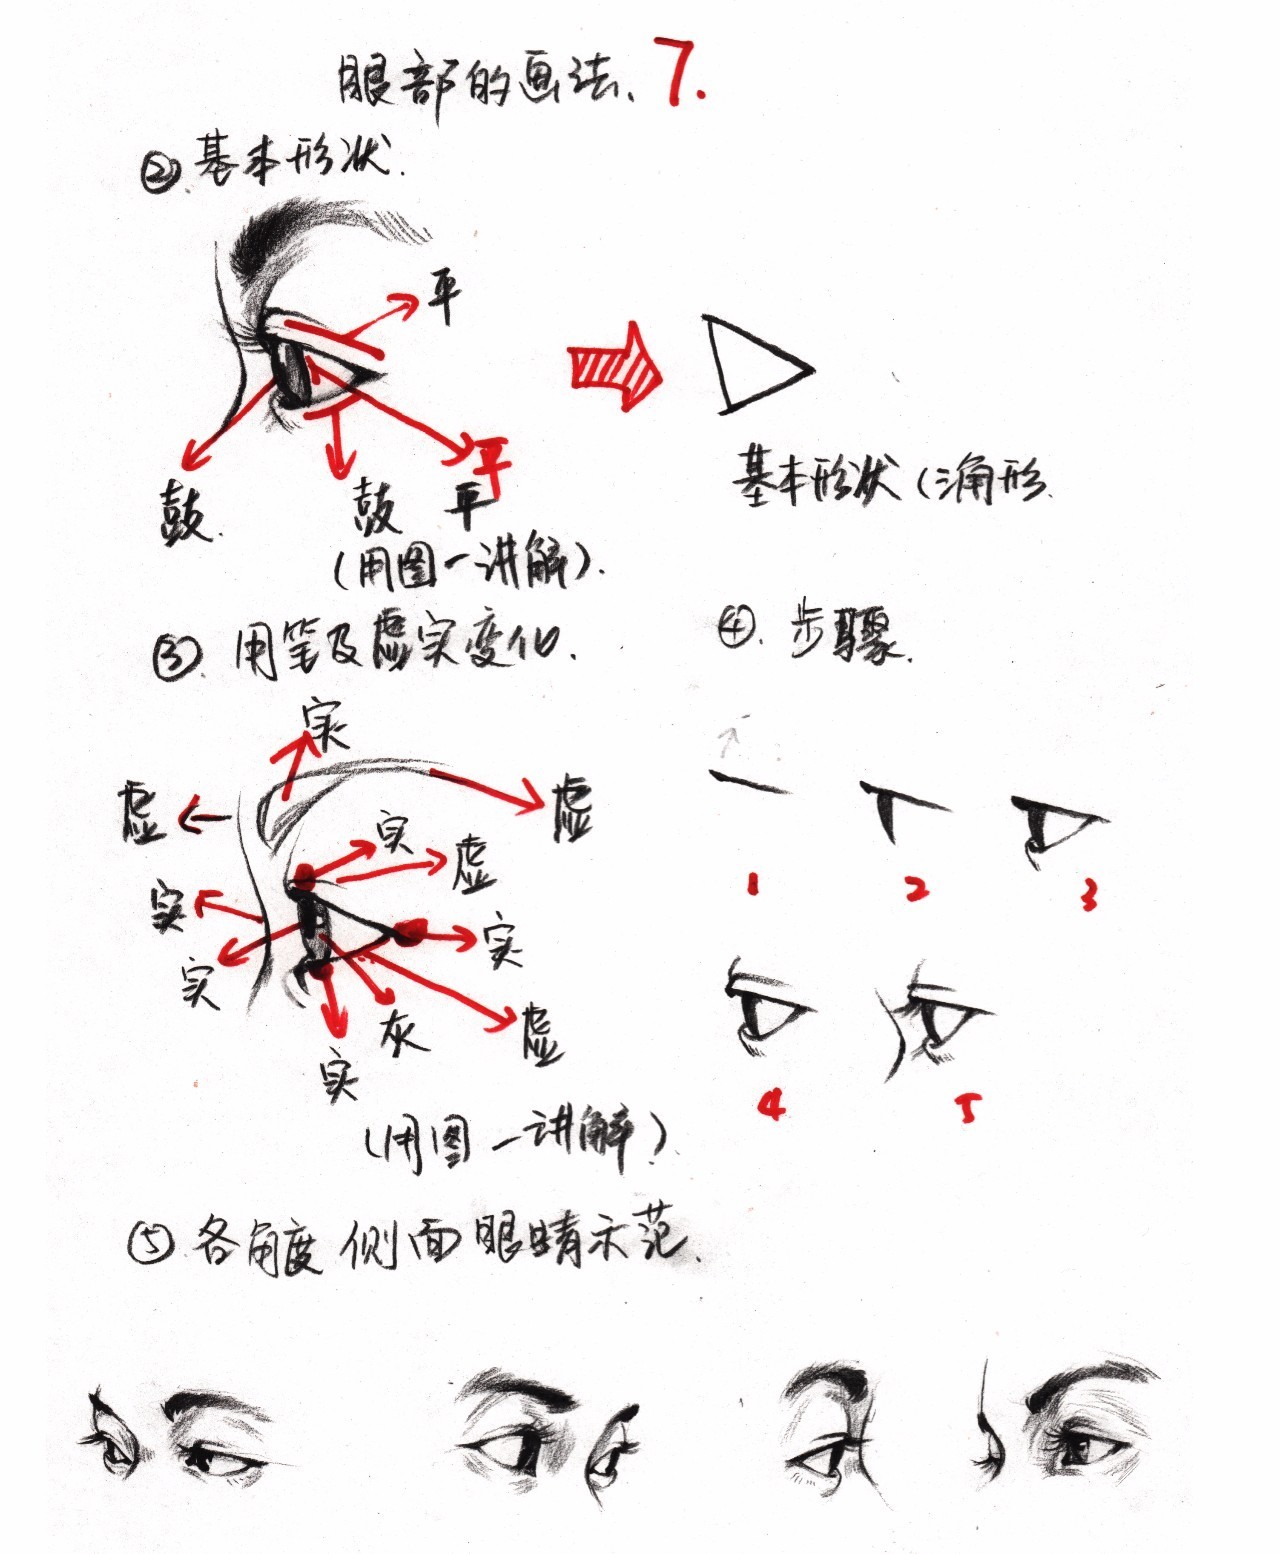 眼部的画法、7.
②.基本形状.
平
鼓.
鼓
平
平
(用图一讲解).
基本形状(三角形.
③.用笔及虚实变化.
实
虚
虚
实
虚
实
实
实
虚
灰
实
(用图一讲解).
④.步骤.
1 2 3
4 5
⑤.各角度侧面眼睛示范.